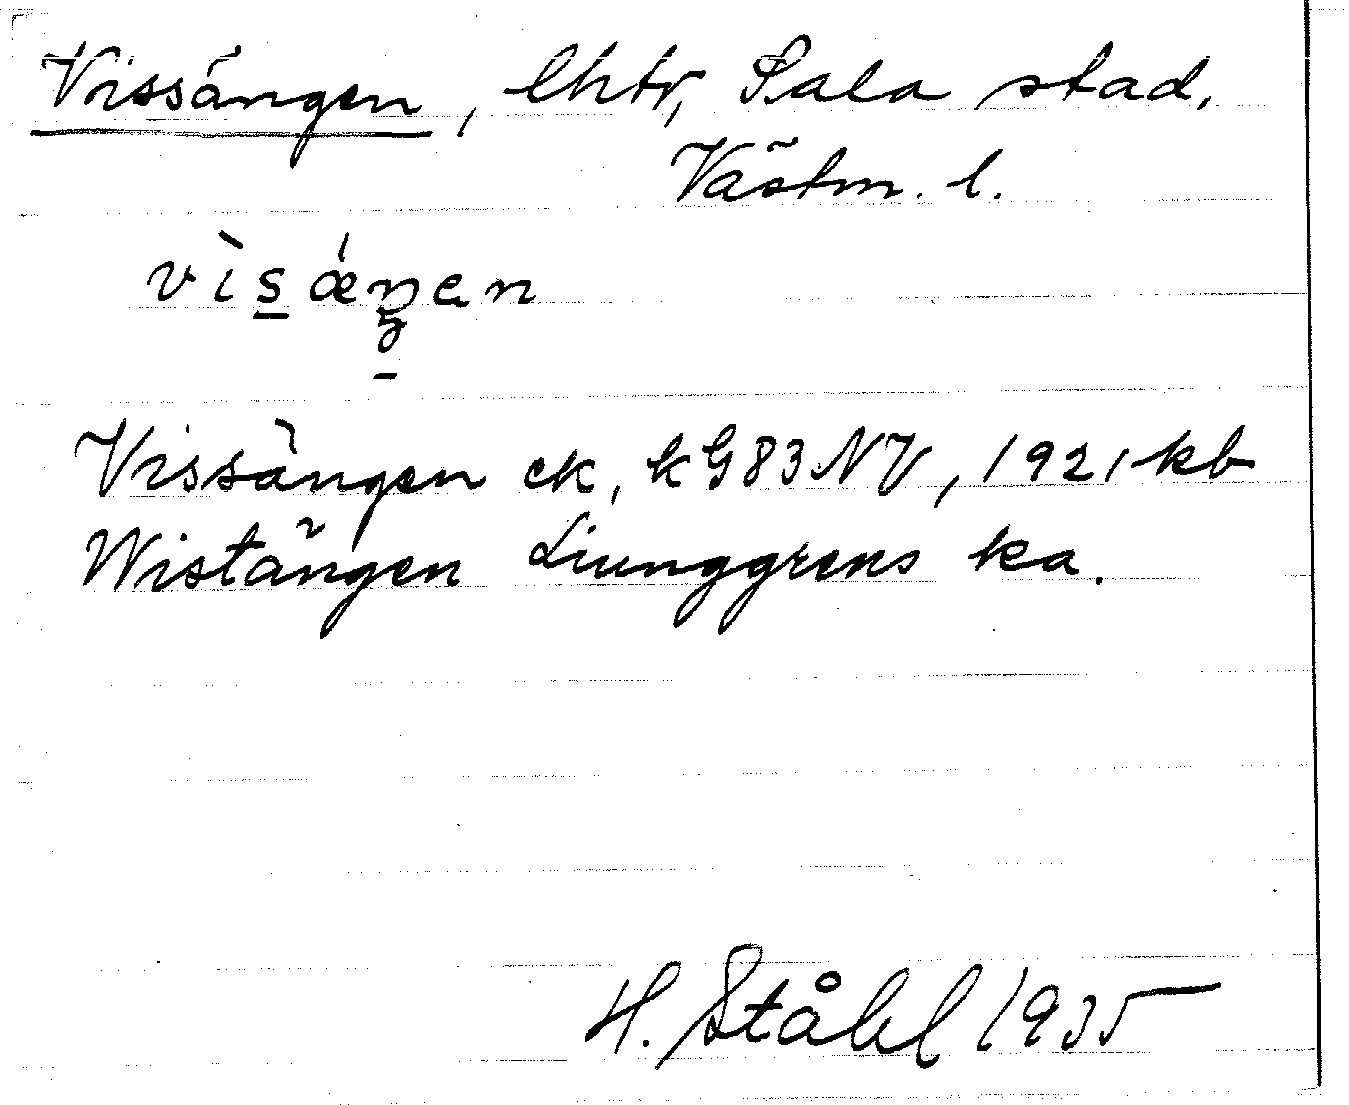 Vissängen, lhtr, Sala stad,
Västm. l.
vìsǽŋen
Vissängen ek, kG83NV, 1921 kb
Wistängen Liunggrens ka.
H. Ståhl 1935